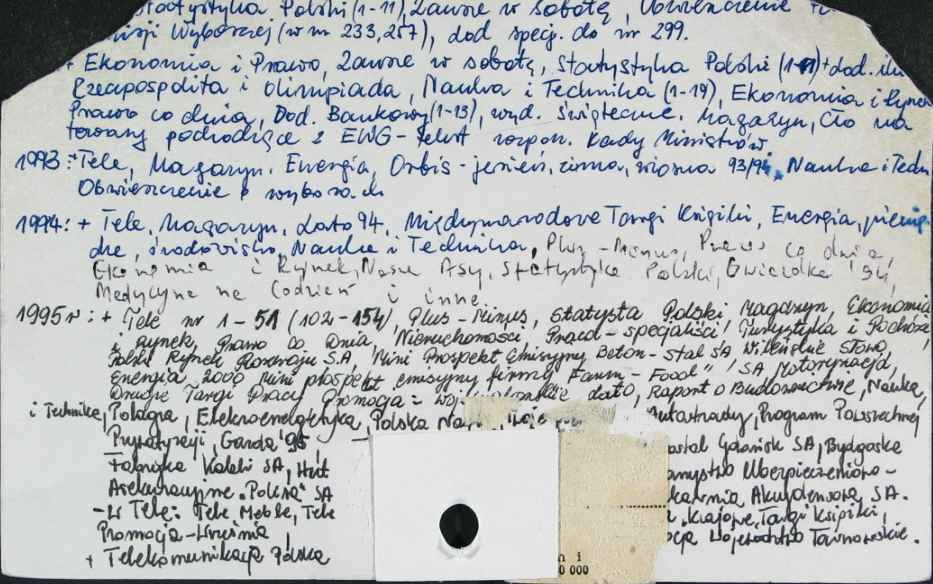 Statystyka Polski (1-11), Zawsze w sobotę, Obwieszczenie
Komisji Wyborczej (w nr 233, 257), dod specj. do nr 299.
+ Ekonomia i Prawo, Zawsze w sobotę, Statystyka Polski (1-11) + dod.
Rzeczpospolita i Olimpiada, Nauka i Technika (1-19), Ekonomia i Rynek
Prawo co dnia, Dod. Bankowy (1-13), wyd. świąteczne. Magazyn, Cło na
towary pochodzące z EWG - tekst rozpon. Rady Ministrów
1993: + Tele, Magazyn. Energia, Orbis - jesień, zima, wiosna 93/94, Nauka i Techn
Obwieszczenie o wyborach
1994: + Tele, Magazyn, Lato 94, Międzynarodowe Targi Książki, Energia, pienią-
dze, środowisko, Nauka i Technika, Plus - Minus, Prawo co dnia,
Ekonomia i Rynek, Nasze Asy, Statystyka Polski, Gwiazdka '94,
Medycyna na Codzień i inne
1995 r: + Tele nr 1-51 (102-154) Plus - Minus, Statysta Polski Magazyn, Ekonomia
i Rynek, Prawo co Dnia, Nieruchomości, Praca - specjaliści, Turystyka i Podróże,
Polski Rynek Rozwoju S.A, Mini Prospekt Emisyjny Beton-Stal SA, Wileńskie Słowo,
Energia 2000 Mini prospekt emisyjny firmy Farm - Food" SA Motoryzacja,
Drugie Targi Pracy Promocja = Wojewódzkie Lato, Raport o Budownictwie, Nauka,
i Technika, Polagra, Elektroenergetyka, Polska Autostrady, Program Powszechnej
Prywatyzacji, Garda '95 ostal Gdańsk SA, Bydgoska
Fabryka Kabli SA, Hut arzystwo Ubezpieczeniowo-
Asekuracyjne "Polisa" SA karnia Akcydensowa SA.
- W Tele: Tele Meble, Tele Krajowe Targi Książki,
Promocja - Września cja Województwo Tarnowskie.
+ Telekomunikacja Polska
n i
0 000